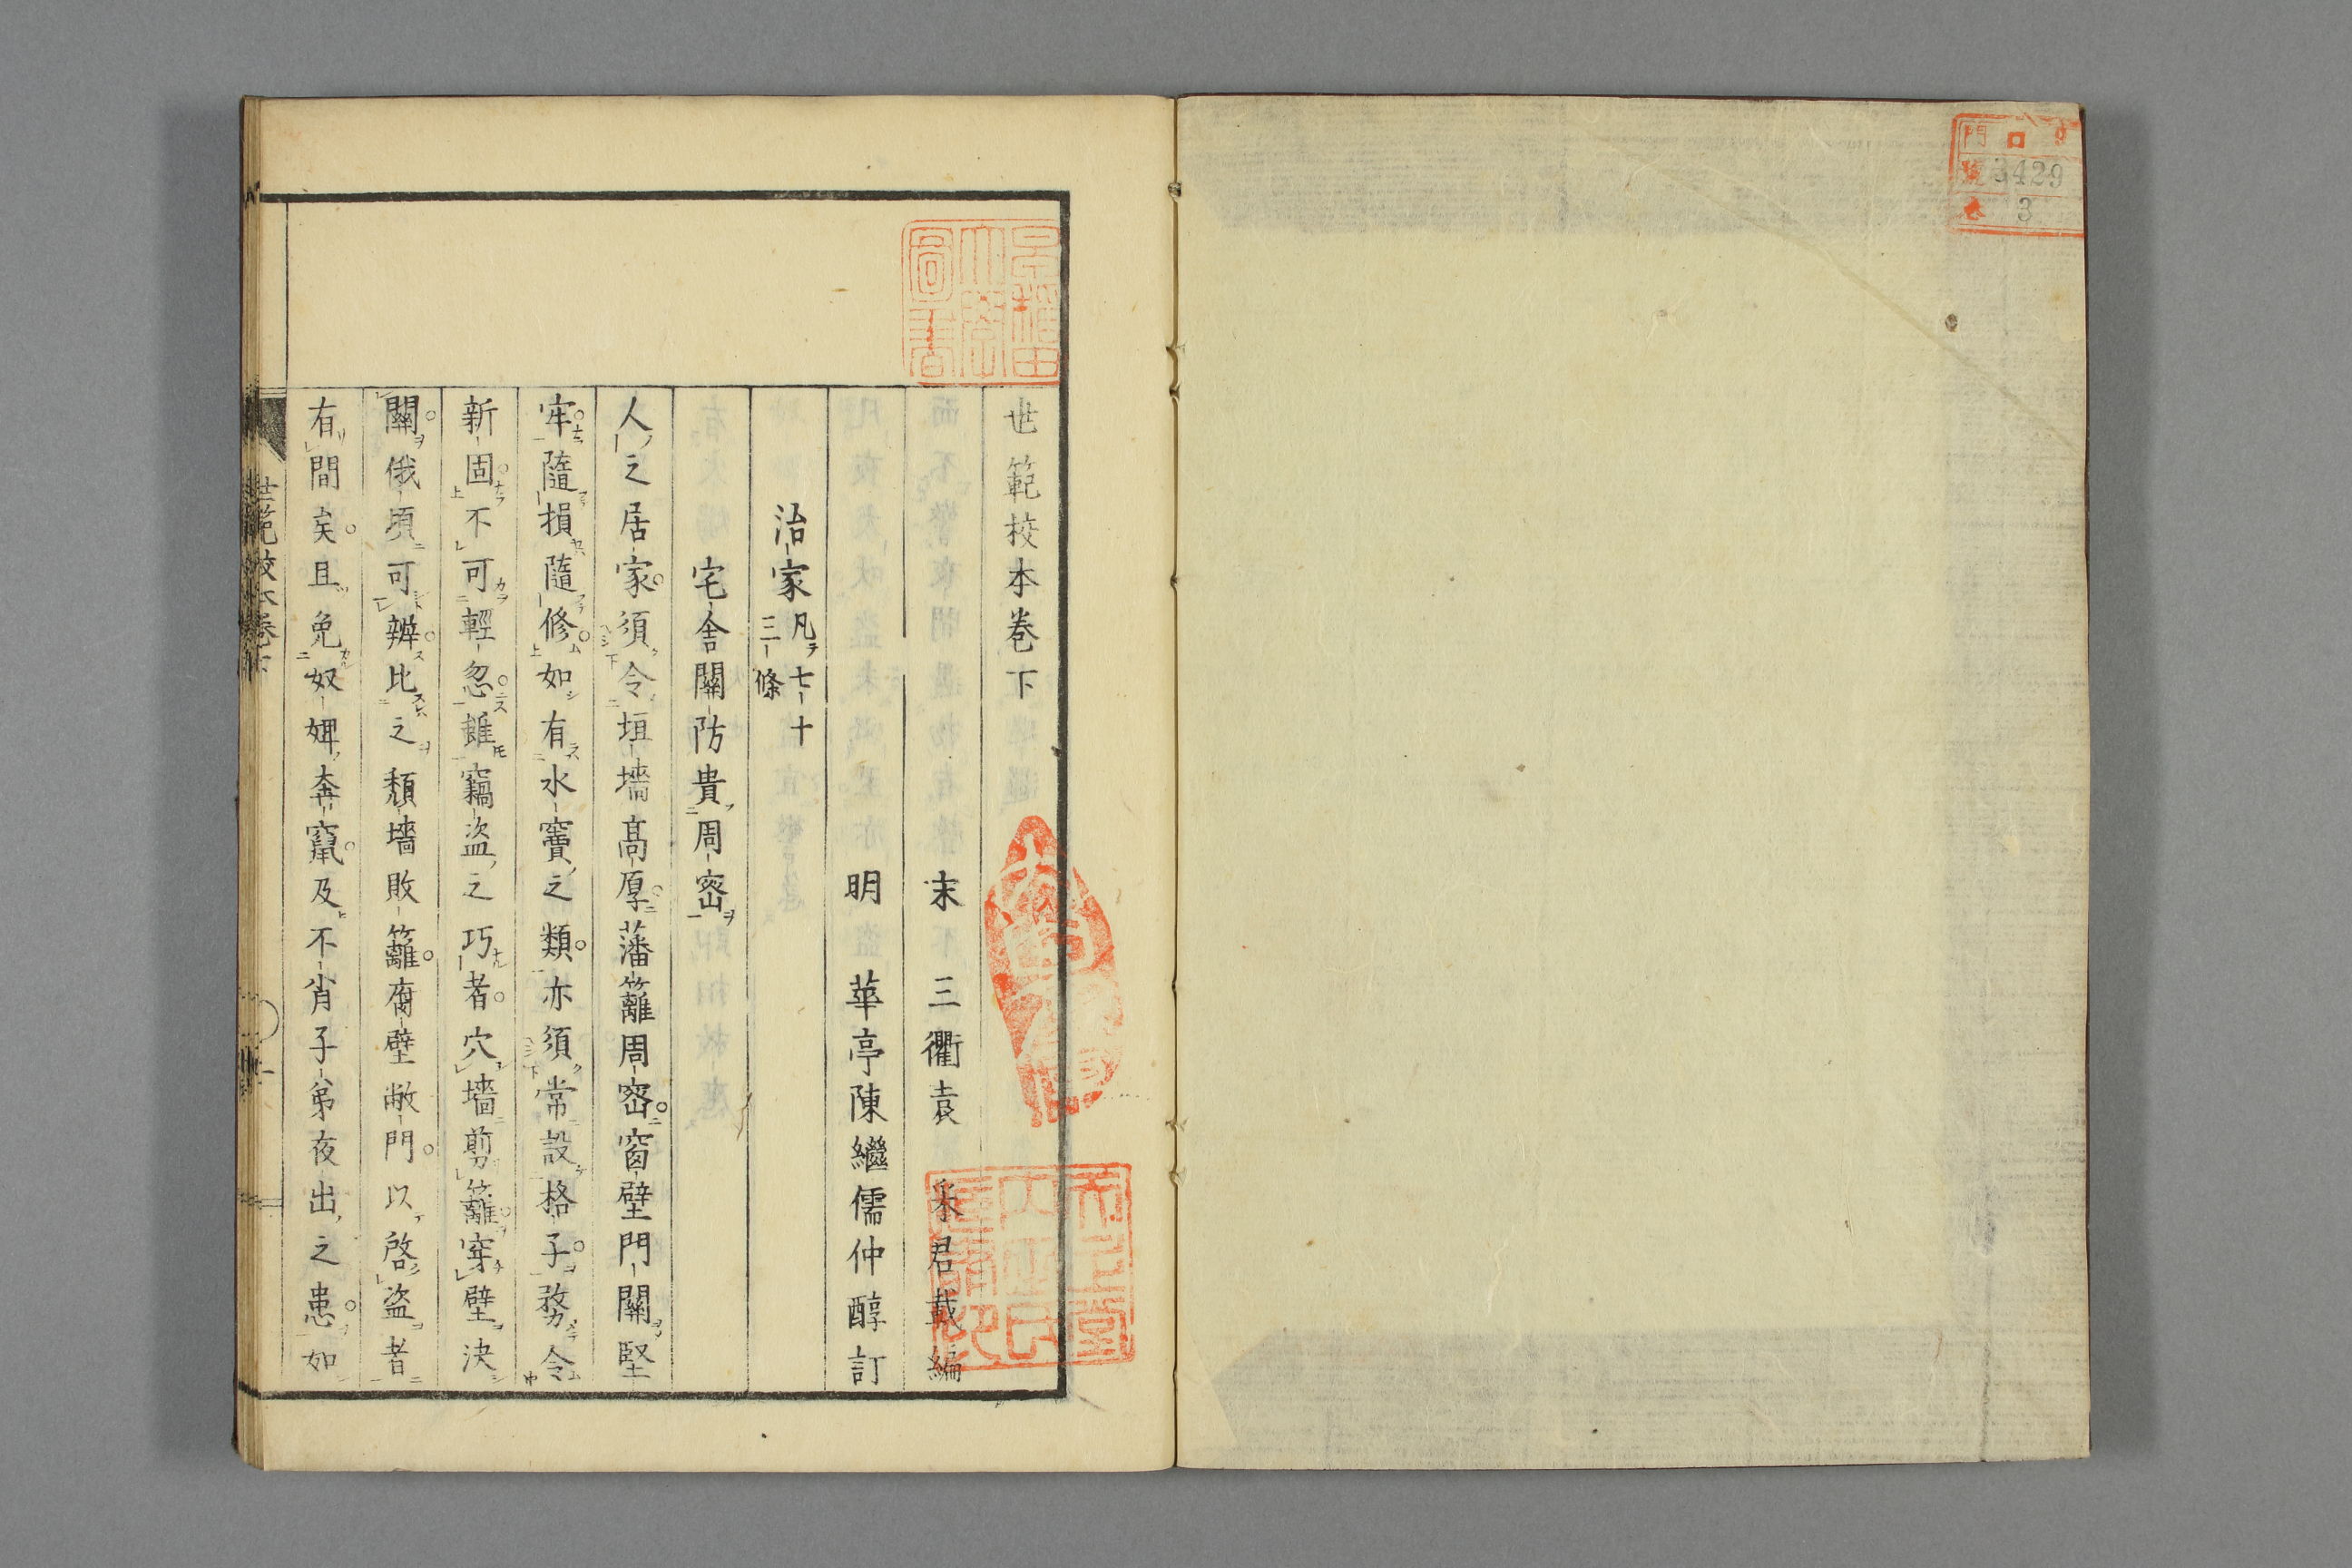 門 口
號 3429
卷 3
早稲田大學圖書
世範校本卷下
末 三衢袁 采君載編
明 華亭陳繼儒仲醇訂
治家凡七十三條
宅舍關防貴周密
人之居家須令垣墻高厚藩籬周密窗壁門關堅
牢隨損隨修如有水竇之類亦須常設格子務令
新固不可輕忽雖竊盜之巧者穴墻剪籬穿壁決
關俄頃可辨比之頹墻敗籬腐壁敝門以啓盜者
有間矣且免奴婢奔竄及不肖子弟夜出之患如
世範校本卷下